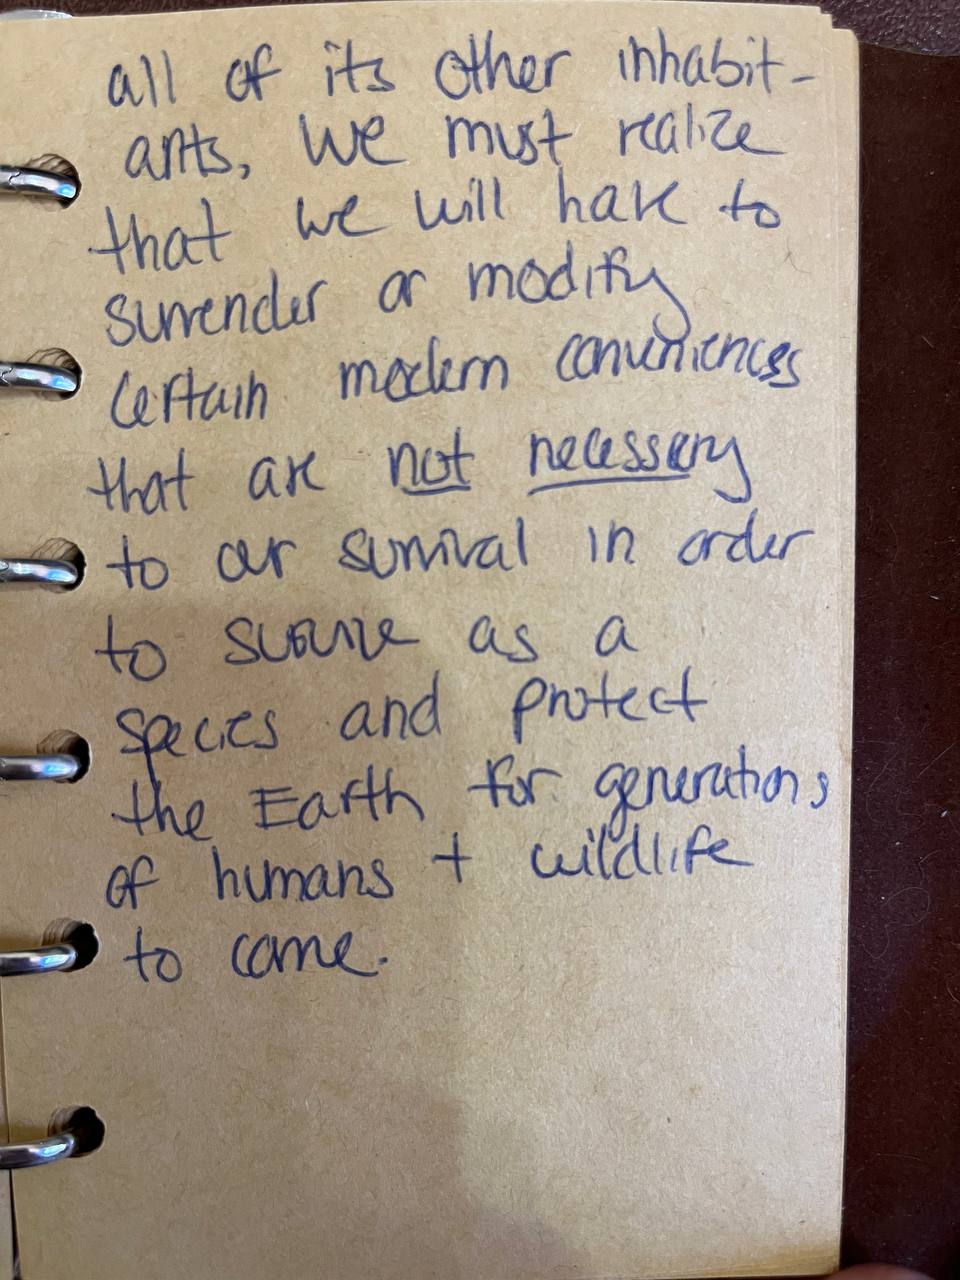 all of its other inhabit-
ants, we must realize
that we will have to
surrender or modify
certain modern conveniences
that are not necessary
to our survival in order
to survive as a
species and protect
the Earth for generations
of humans + wildlife
to come.